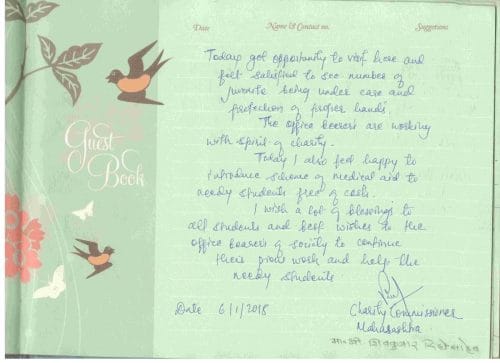 Date Name & Contact no. Suggestions
Guest
Book
Today got opportunity to visit here and
felt satisfied to see number of
juvenile being under care and
protection of proper hands.
The office bearers are working
with spirit of charity.
Today I also feel happy to
introduce scheme of medical aid to
needy students free of cash.
I wish a lot of blessings to
all students and best wishes to the
office bearers of society to continue
their pious work and help the
needy students
Date 6/1/2018
Charity Commissioner
Maharashtra
शिवकुमार